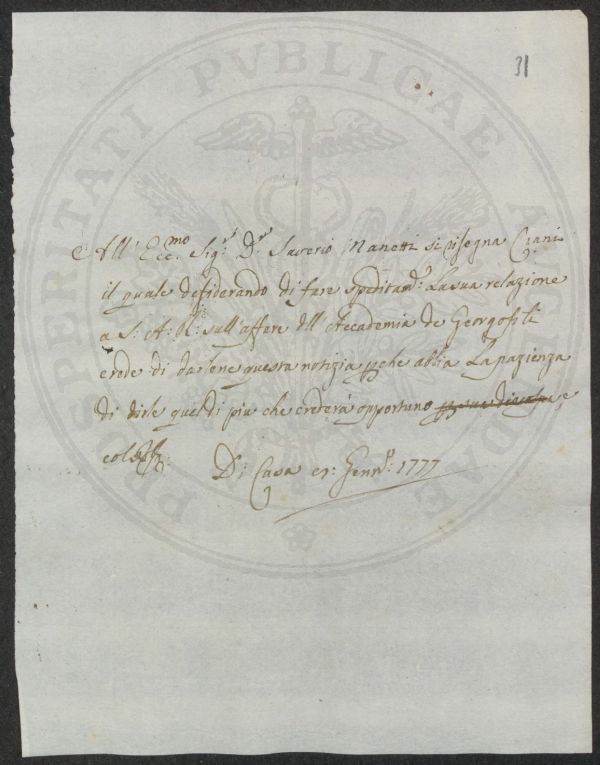 31
PROSPERITATI PVBLICAE AVGENDAE
All' Ecc.mo Sig.r D.r Saverio Manetti si risegna Ciani
il quale desiderando di fare speditam.e la sua relazione
a S: A: R: sull'affare dell'Accademia de Georgofili
crede di darlene questa notizia ꝑche abbia la pazienza
di dirle quel di più che crederà opportuno e
Di Casa Genn.o 1777